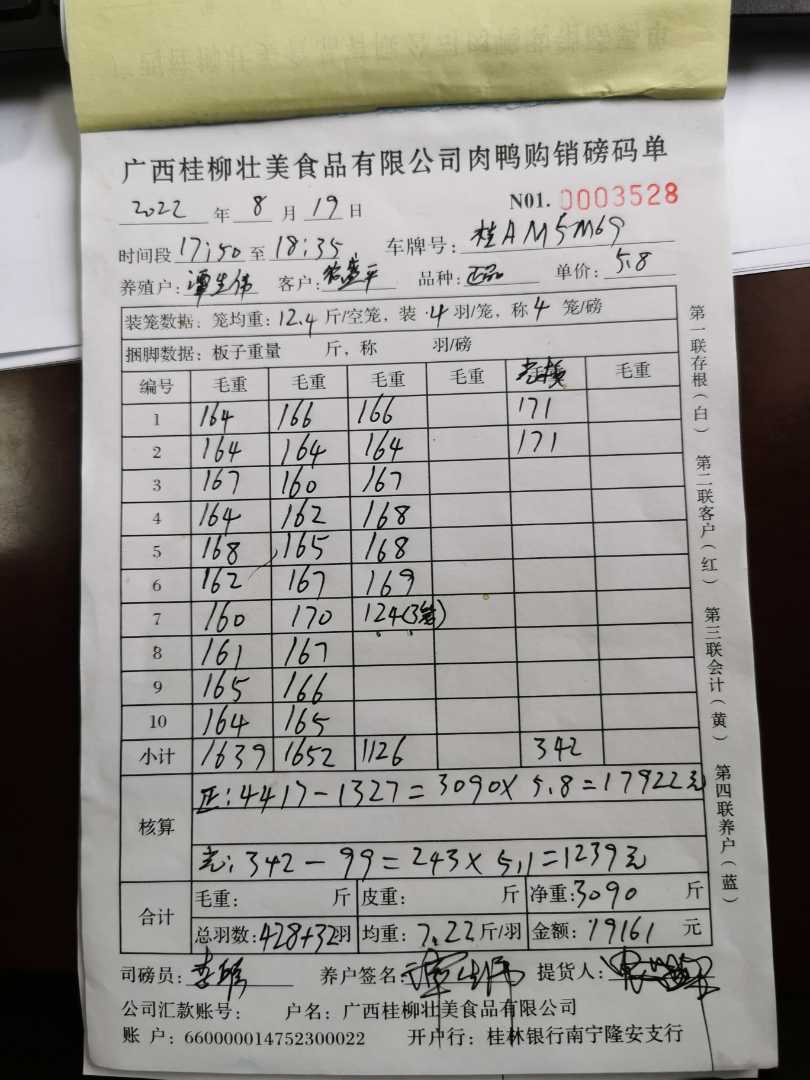 广西桂柳壮美食品有限公司肉鸭购销磅码单
2022 年 8 月 19 日 N01. 0003528
时间段 17:50 至 18:35 车牌号: 桂AM5M69
养殖户: 谭生伟 客户: 平 品种: 正品 单价: 5.8
装笼数据: 笼均重: 12.4 斤/空笼, 装 4 羽/笼, 称 4 笼/磅
捆脚数据: 板子重量 斤, 称 羽/磅
编号 毛重 毛重 毛重 毛重 毛重
1 164 166 166 171
2 164 164 164 171
3 167 160 167
4 164 162 168
5 168 165 168
6 162 167 169
7 160 170 124(3笼)
8 161 167
9 165 166
10 164 165
小计 1639 1652 1126 342
核算 正: 4417-1327=3090×5.8=17922元
: 342-99=243×5.1=1239元
合计 毛重: 斤 皮重: 斤 净重: 3090 斤
总羽数: 428+32羽 均重: 7.22斤/羽 金额: 19161 元
司磅员: 李 养户签名: 谭生伟 提货人:
公司汇款账号: 户名: 广西桂柳壮美食品有限公司
账 户: 660000014752300022 开户行: 桂林银行南宁隆安支行
第一联存根(白) 第二联客户(红) 第三联会计(黄) 第四联养户(蓝)